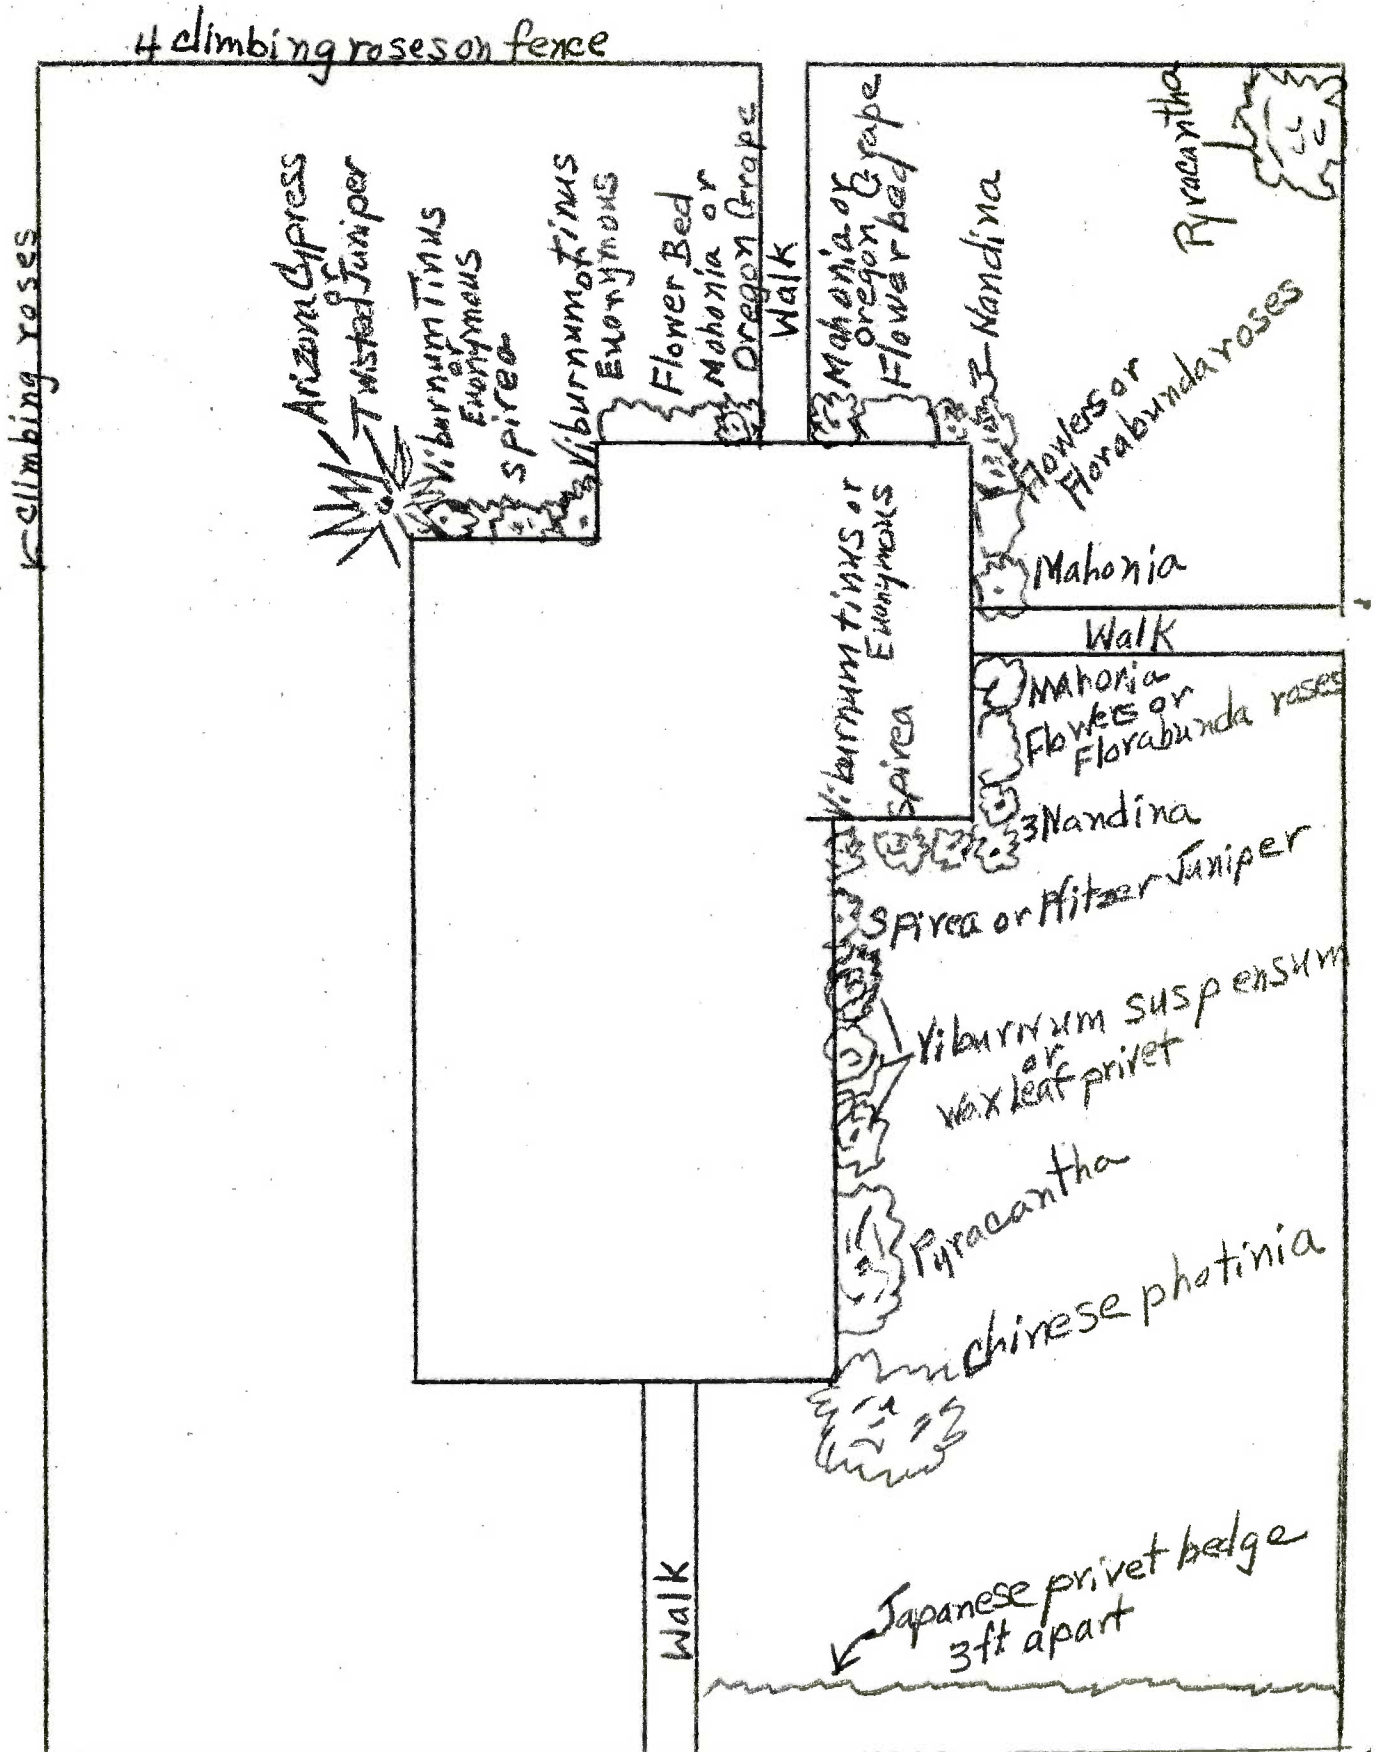 4 climbing roses on fence
climbing roses
Arizona Cypress
or
Twisted Juniper
Viburnum Tinus
or
Euonymous
spirea
Viburnum Tinus
or
Euonymous
Flower Bed
Mahonia or
Oregon Grape
Walk
Mahonia or
Oregon Grape
Flower bed
3 Nandina
Pyracantha
Flowers or
Florabunda roses
Mahonia
Walk
Viburnum tinus or
Euonymous
spirea
Mahonia
Flowers or
Florabunda roses
3 Nandina
Spirea or Pfitzer Juniper
Viburnum suspensum
or
wax leaf privet
Pyracantha
chinese photinia
Walk
Japanese privet hedge
3ft apart